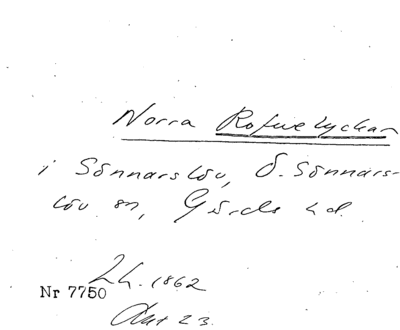 Norra Rofvelyckan
i Sönnarslöv, Ö. Sönnars-
löv sn, Gärds hd.
Lh. 1862
Nr 7750
Akt 23.